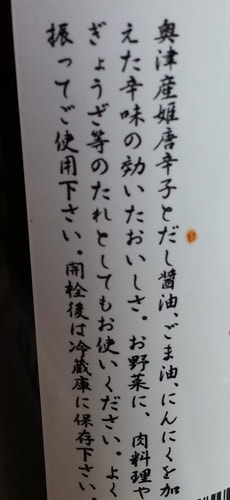 奥津産姫唐辛子とだし醤油、ごま油、にんにくを加
えた辛味の効いたおいしさ。お野菜に、肉料理や
ぎょうざ等のたれとしてもお使いください。よく
振ってご使用下さい。開栓後は冷蔵庫に保存下さい。